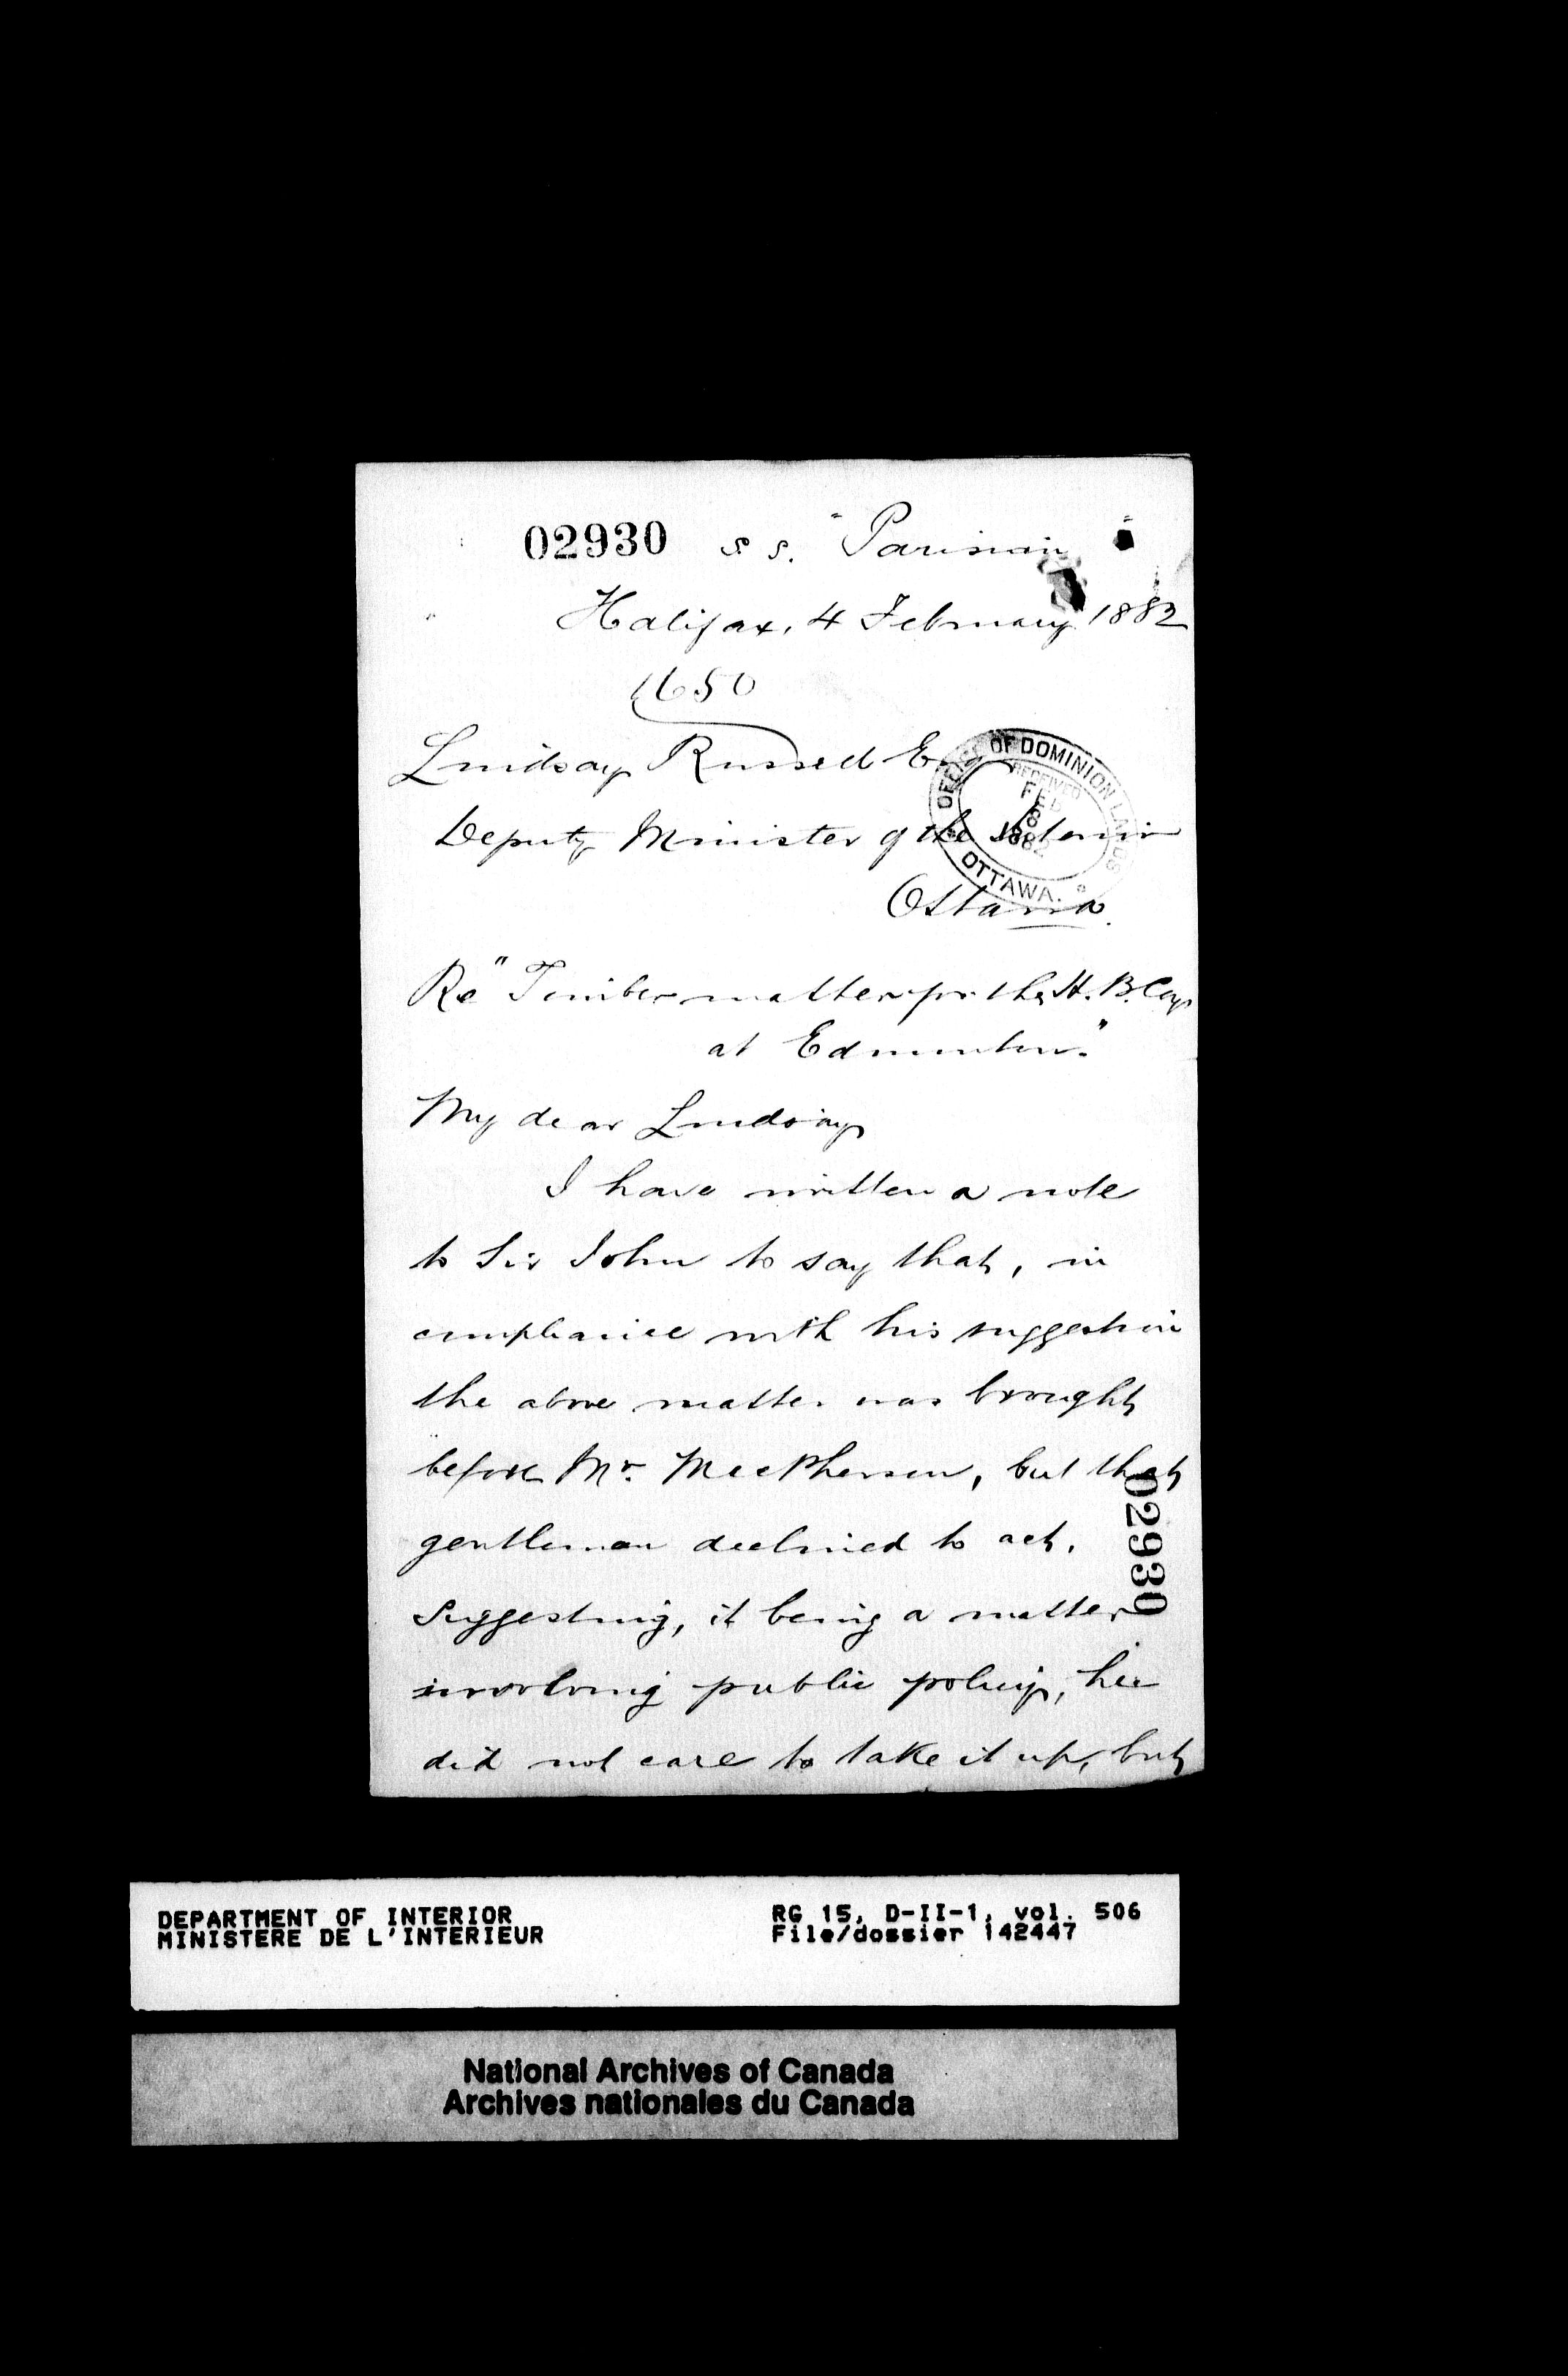 02930 S.S. "Parisian"
Halifax, 4 February 1882
1650
Lindsay Russell E
OFFICE OF DOMINION LANDS
RECEIVED
FEB
8
1882
OTTAWA.
Deputy Minister of the Interior
Ottawa.
Re "Timber matter for the H. B. Coy
at Edmonton."
My dear Lindsay
I have written a note
to Sir John to say that, in
compliance with his suggestion
the above matter was brought
before Mr. MacPherson, but that
gentleman declined to act,
suggesting, it being a matter
involving public policy, he
did not care to take it up, but
02930
DEPARTMENT OF INTERIOR RG 15, D-II-1, vol. 506
MINISTERE DE L'INTERIEUR File/dossier 142447
National Archives of Canada
Archives nationales du Canada